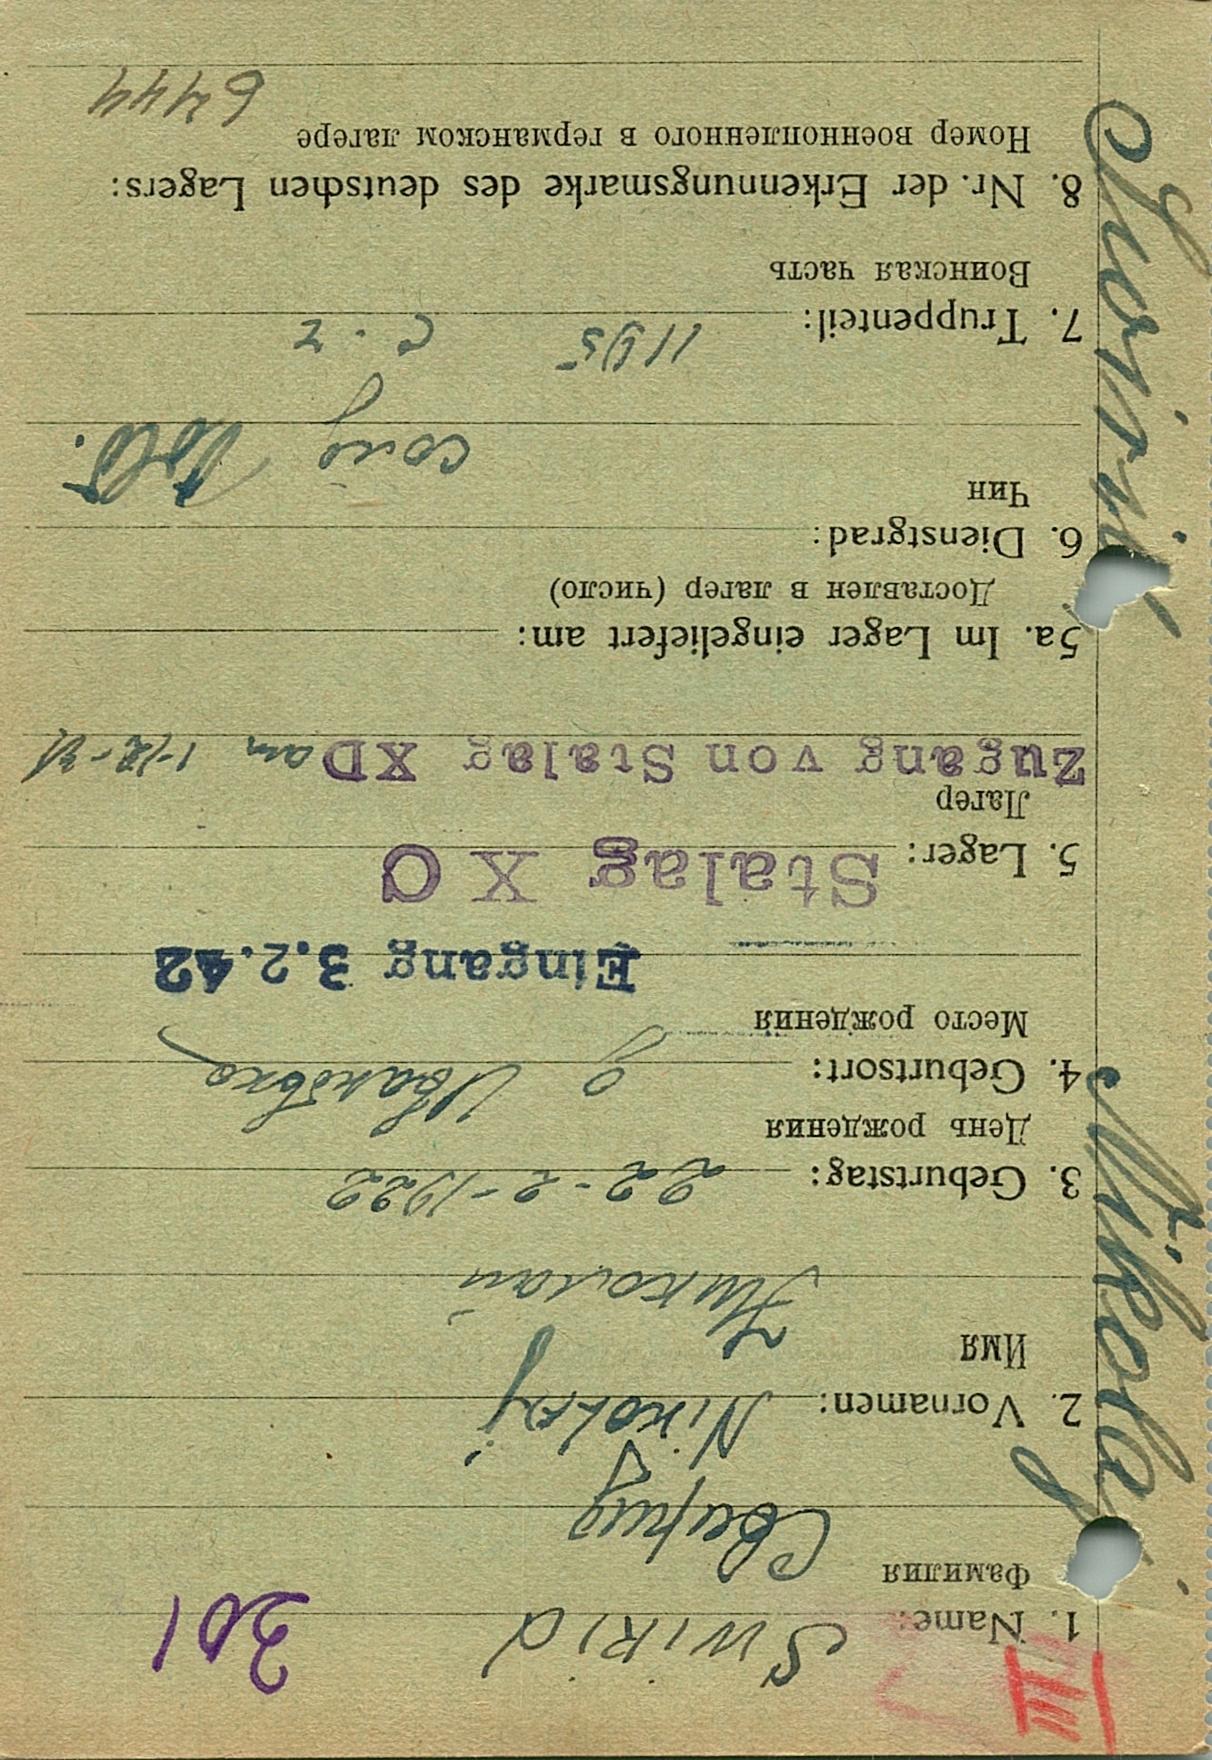 III
301
1. Name: SWIRID
Фамилия
Свирид
2. Vornamen: Nikolaj
Имя
Николай
3. Geburtstag: 22-2-1922
День рождения
4. Geburtsort: д Ивановка
Место рождения
Eingang 3.2.42
5. Lager: Stalag X C
Лагерь
Zugang von Stalag XD am
5a. Im Lager eingeliefert am:
Доставлен в лагер (число)
6. Dienstgrad:
Чин
Sold.
7. Truppenteil: 1195 с.п
Воинская часть
8. Nr. der Erkennungsmarke des deutschen Lagers:
Номер военнопленного в германском лагере
6444
Swirid Nikolaj